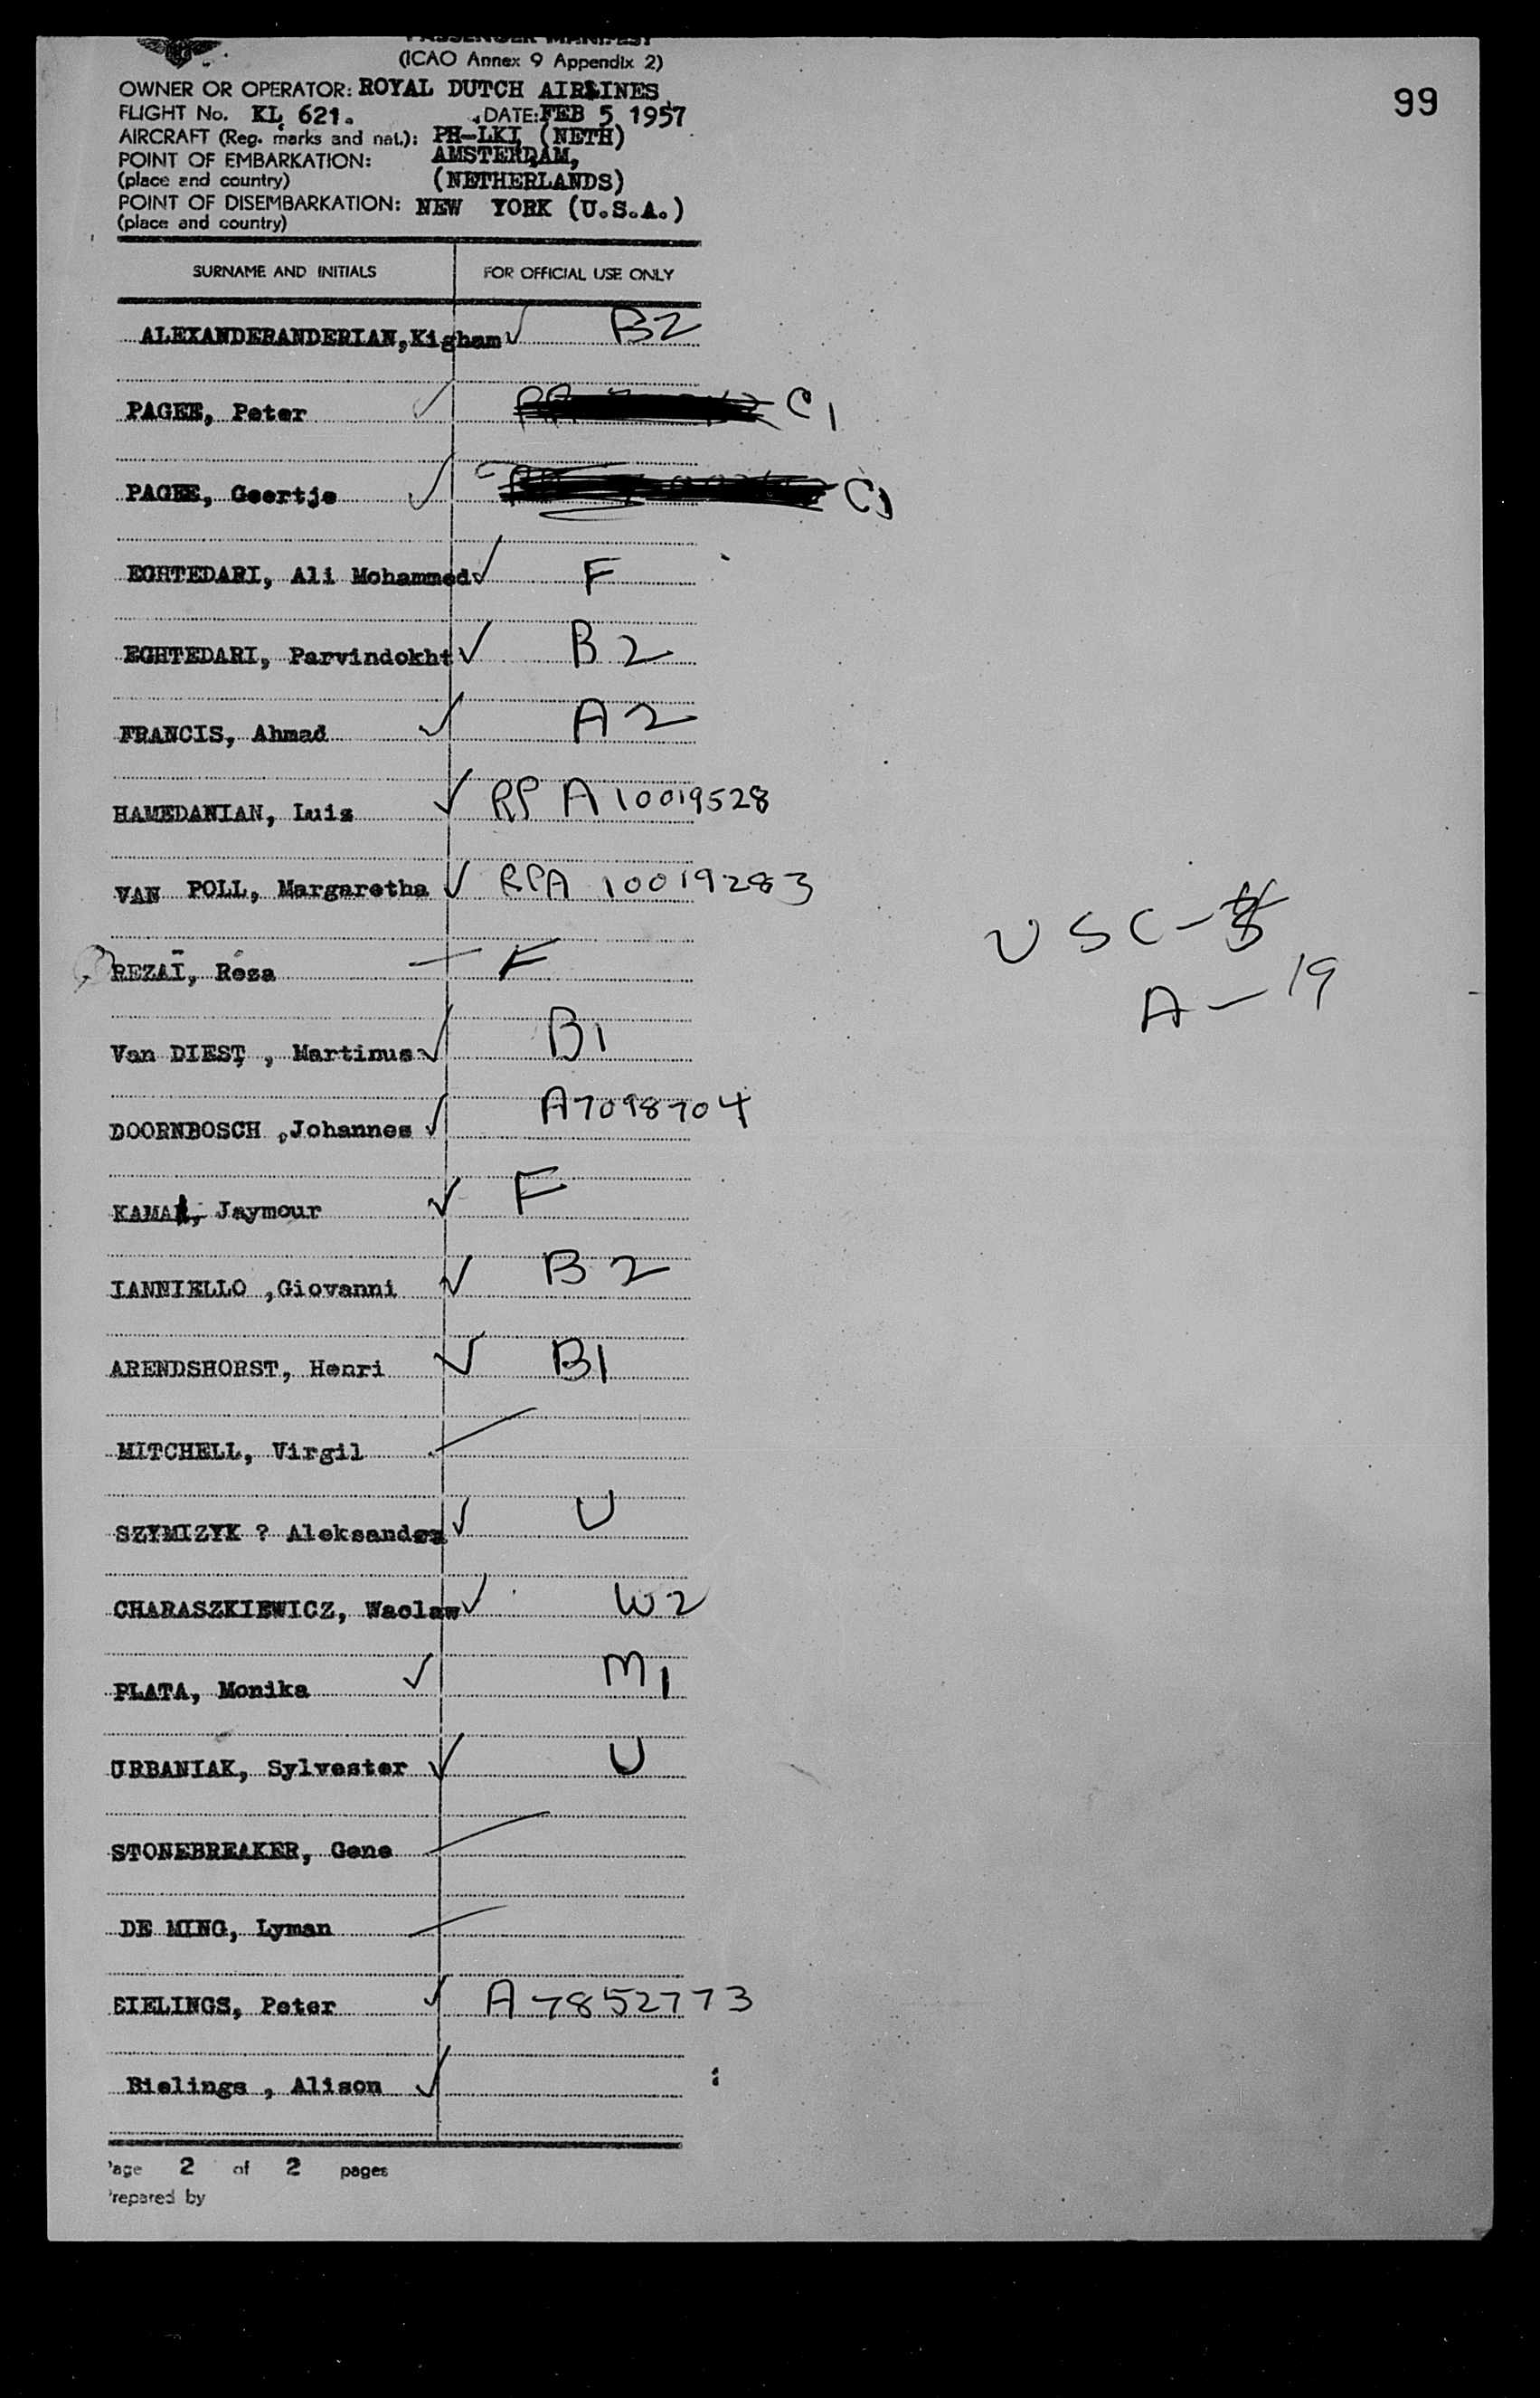 PASSENGER MANIFEST
(ICAO Annex 9 Appendix 2)
99
OWNER OR OPERATOR: ROYAL DUTCH AIRLINES
FLIGHT No. KL 621. DATE: FEB 5 1957
AIRCRAFT (Reg. marks and nat.): PH-LKI (NETH)
POINT OF EMBARKATION: AMSTERDAM,
(place and country) (NETHERLANDS)
POINT OF DISEMBARKATION: NEW YORK (U.S.A.)
(place and country)
SURNAME AND INITIALS FOR OFFICIAL USE ONLY
ALEXANDERANDERIAN, Kigham ✓ B2
PAGEE, Peter ✓ C1
PAGEE, Geertje ✓ C1
EGHTEDARI, Ali Mohammed ✓ F
EGHTEDARI, Parvindokht ✓ B2
FRANCIS, Ahmad ✓ A2
HAMEDANIAN, Luiz ✓ RP A10019528
VAN POLL, Margaretha ✓ RPA 10019283
USC-8
REZAÏ, Réza F
A-19
Van DIEST, Martinus ✓ B1
DOORNBOSCH, Johannes ✓ A7098704
Jaymour ✓ F
IANNIELLO, Giovanni ✓ B2
ARENDSHORST, Henri ✓ B1
MITCHELL, Virgil
SZYMIZYK ? ✓ U
CHARASZKIEWICZ, Waclaw ✓ W2
PLATA, Monika ✓ M1
URBANIAK, Sylvester ✓ U
STONEBREAKER, Gene
DE MING, Lyman
BIELINGS, Peter ✓ A7852773
Bielings, Alison ✓
Page 2 of 2 pages
Prepared by